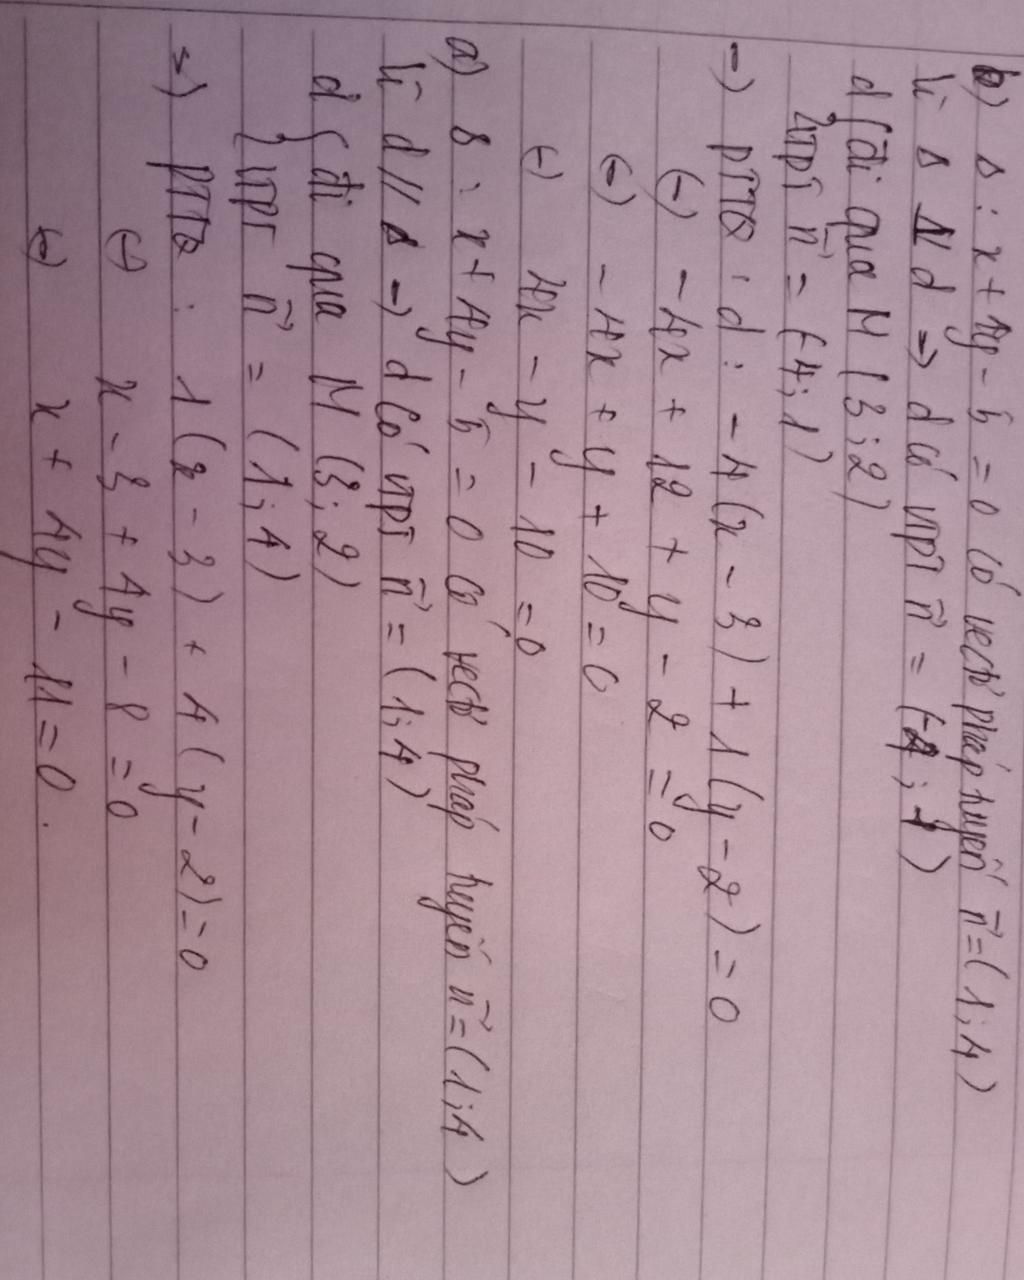 b) Δ : x + 4y - 5 = 0 có vectơ pháp tuyến n⃗ = (1; 4)
Vì Δ ⊥ d => d có VTPT n⃗ = (-4; 1)
d { đi qua M (3; 2)
VTPT n⃗ = (-4; 1)
=> PTTQ : d : -4 (x - 3) + 1 (y - 2) = 0
(-) -4x + 12 + y - 2 = 0
(-) -4x + y + 10 = 0
(-) 4x - y - 10 = 0
a) Δ : x + 4y - 5 = 0 có vectơ pháp tuyến n⃗ = (1; 4)
Vì d // Δ => d có VTPT n⃗ = (1; 4)
d { đi qua M (3; 2)
VTPT n⃗ = (1; 4)
=> PTTQ : 1 (x - 3) + 4 (y - 2) = 0
(-) x - 3 + 4y - 8 = 0
(-) x + 4y - 11 = 0.